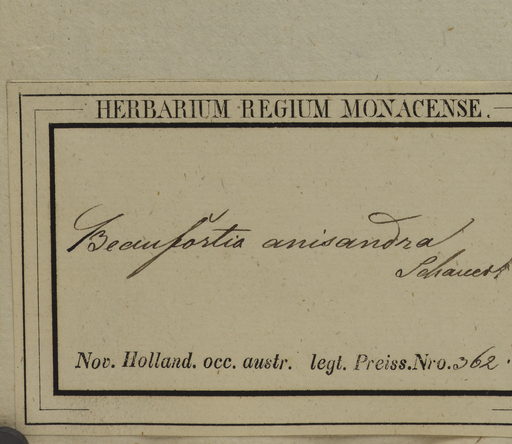 HERBARIUM REGIUM MONACENSE.
Beaufortia anisandra
Schauer
Nov. Holland. occ. austr. legt. Preiss. Nro. 362.